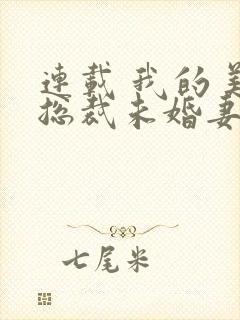 連載 我的美
總裁未婚妻
七尾米